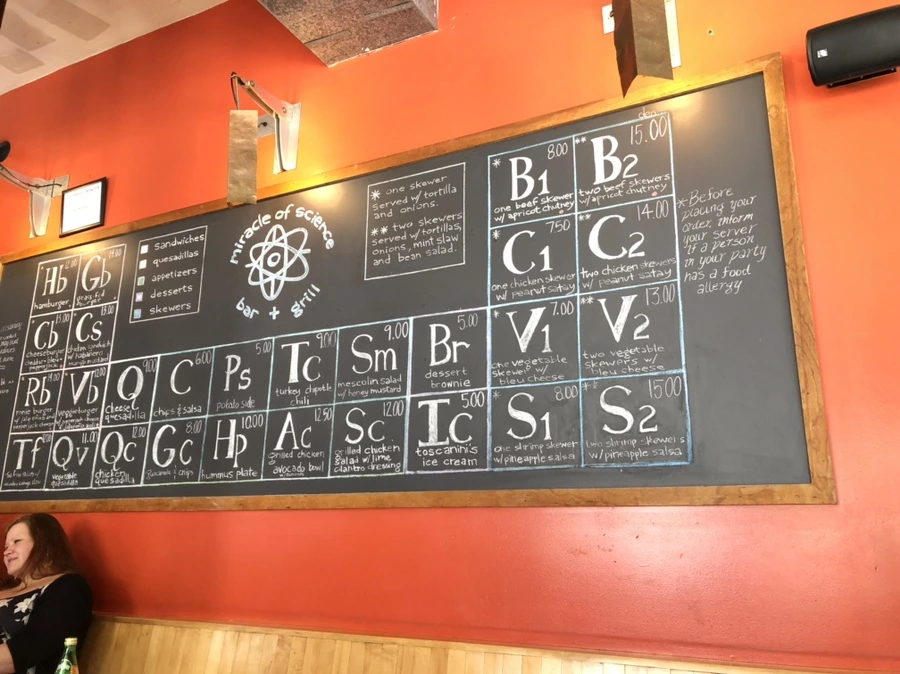 miracle of science
bar + grill
sandwiches
quesadillas
appetizers
desserts
skewers
* one skewer
served w/ tortilla
and onions.
** two skewers
served w/ tortillas,
onions, mint slaw
and bean salad.
* 8.00
B1
one beef skewer
w/ apricot chutney
** 15.00
B2
two beef skewers
w/ apricot chutney
* 7.50
C1
one chicken skewer
w/ peanut satay
** 14.00
C2
two chicken skewers
w/ peanut satay
* 7.00
V1
one vegetable
skewer w/
bleu cheese
** 13.00
V2
two vegetable
skewers w/
bleu cheese
* 8.00
S1
one shrimp skewer
w/ pineapple salsa
** 15.00
S2
two shrimp skewers
w/ pineapple salsa
*Before
placing your
order, inform
your server
if a person
in your party
has a food
allergy
Hb
hamburger
Gb
Cb
cheeseburger
Cs
Rb
Vb
veggieburger
Q 9.00
cheese
quesadilla
C 6.00
chips & salsa
Ps 5.00
potato side
Tc 9.00
turkey chipotle
chili
Sm 9.00
mescolin salad
w/ honey mustard
Br 5.00
dessert
brownie
Tf
Qv 11.00
vegetable
quesadilla
Qc 12.00
chicken
quesadilla
Gc 8.00
& chips
Hp 10.00
hummus plate
Ac 12.50
grilled chicken
avocado bowl
Sc 12.00
grilled chicken
salad w/ lime
cilantro dressing
Ic 5.00
toscanini's
ice cream